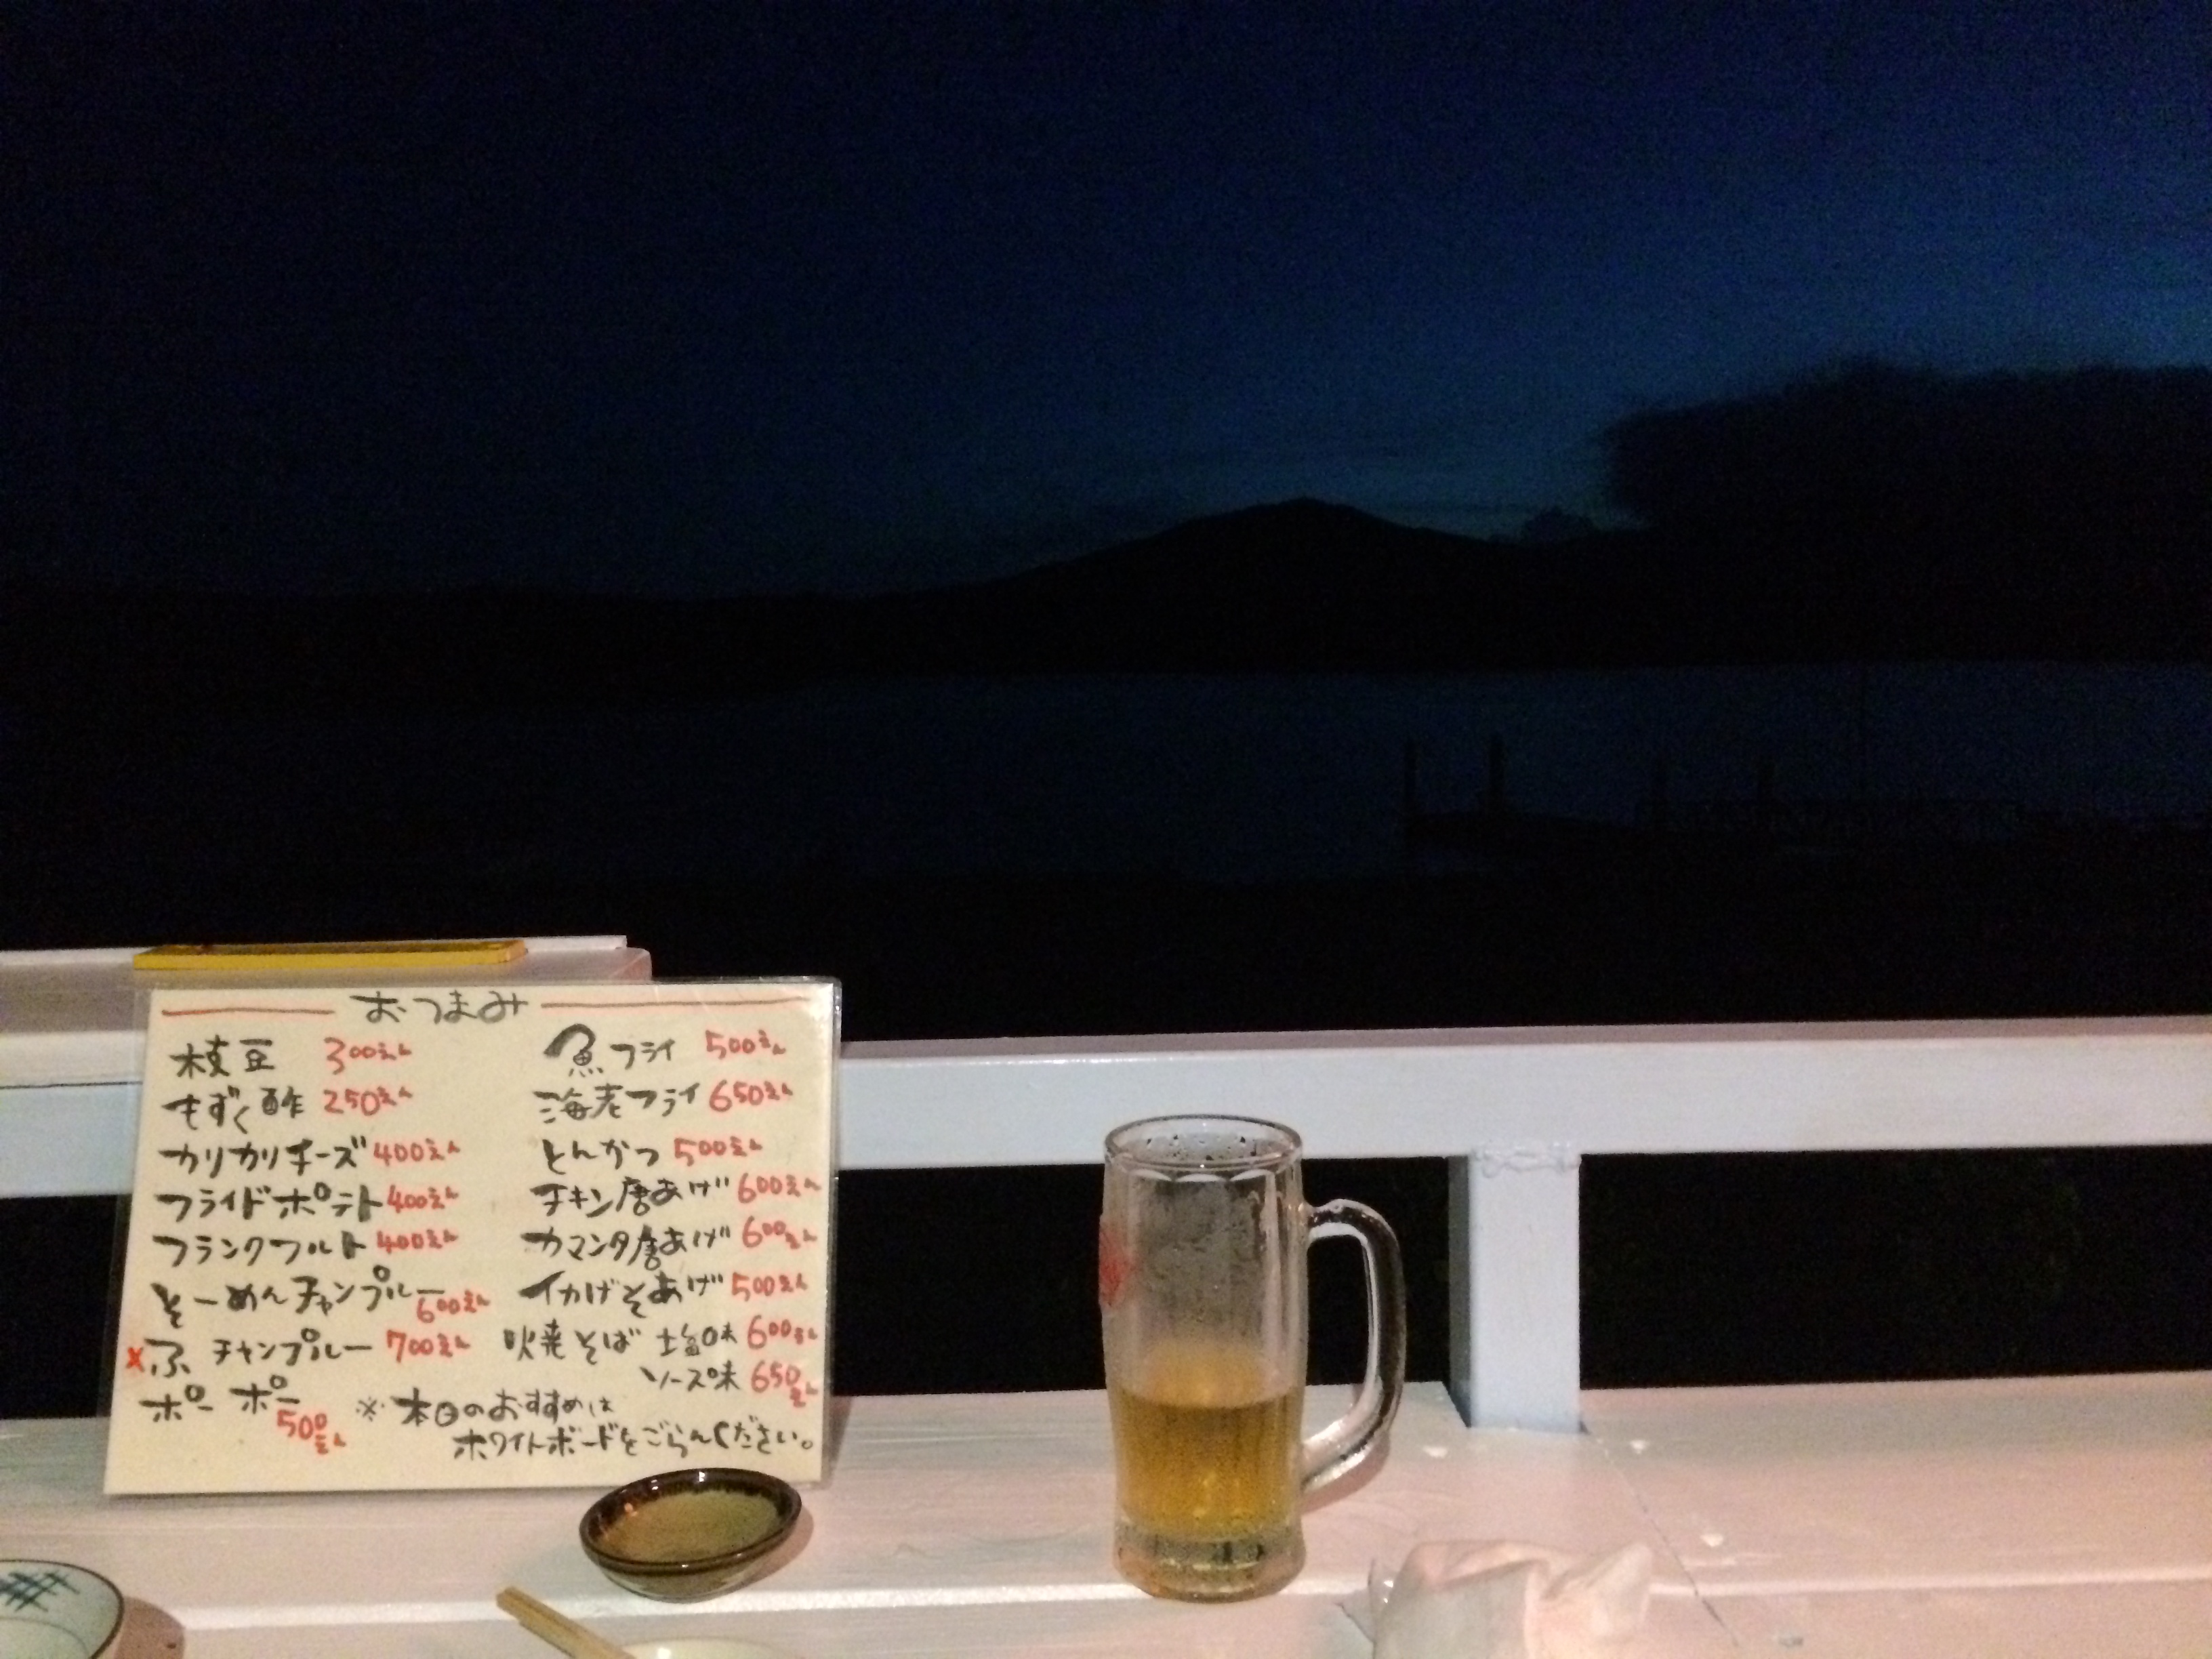 おつまみ
枝豆 300えん
もずく酢 250えん
カリカリチーズ 400えん
フライドポテト 400えん
フランクフルト 400えん
そーめんチャンプルー 600えん
×ふチャンプルー 700えん
ポーポー 500えん
魚フライ 500えん
海老フライ 650えん
とんかつ 500えん
チキン唐あげ 600えん
カマンタ唐あげ 600えん
イカげそあげ 500えん
焼そば 塩味 600えん
ソース味 650えん
※本日のおすすめは
ホワイトボードをごらんください。